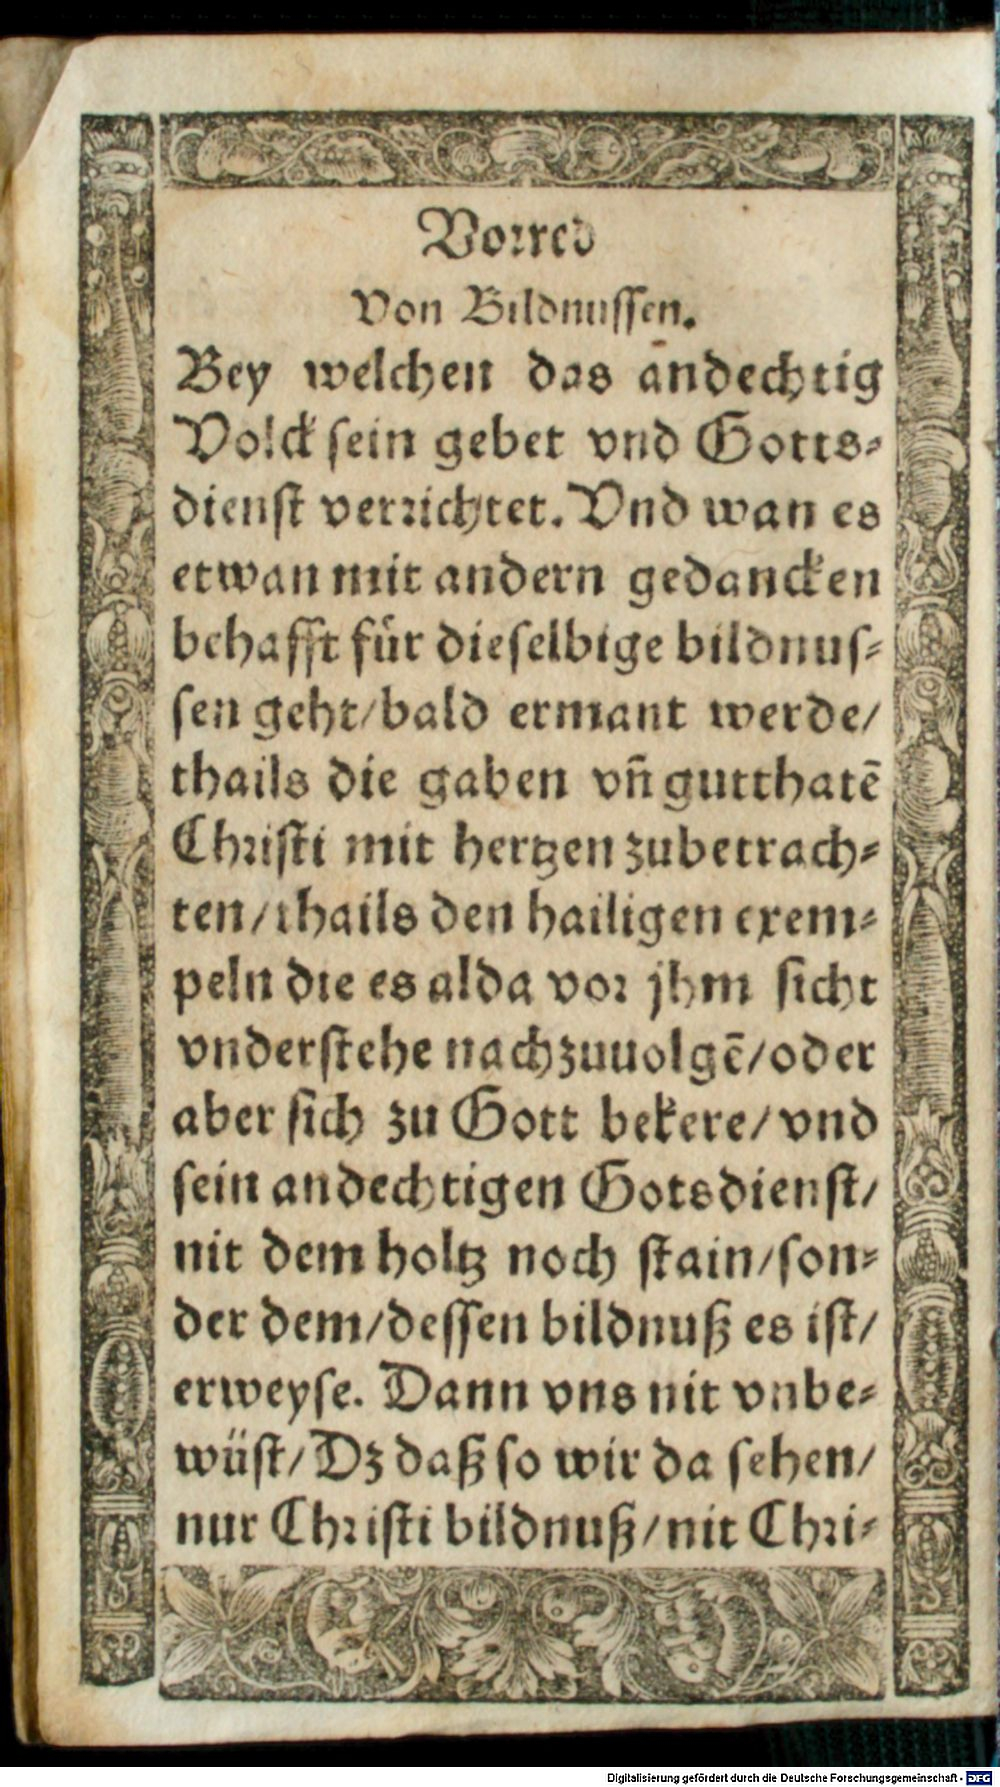 Vorred
Von Bildnussen.
Bey welchen das andechtig
Volck sein gebet vnd Gotts⸗
dienst verrichtet. Vnd wan es
etwan mit andern gedancken
behafft für dieselbige bildnus⸗
sen geht/bald ermant werde/
thails die gaben vñ gutthatē
Christi mit hertzen zubetrach⸗
ten/thails den hailigen exem⸗
peln die es alda vor jhm sicht
vnderstehe nachzuuolgē/oder
aber sich zu Gott bekere/vnd
sein andechtigen Gotsdienst/
nit dem holtz noch stain/son⸗
der dem/dessen bildnuß es ist/
erweyse. Dann vns nit vnbe⸗
wüst/Dz daß so wir da sehen/
nur Christi bildnuß/nit Chri⸗
Digitalisierung gefördert durch die Deutsche Forschungsgemeinschaft - DFG